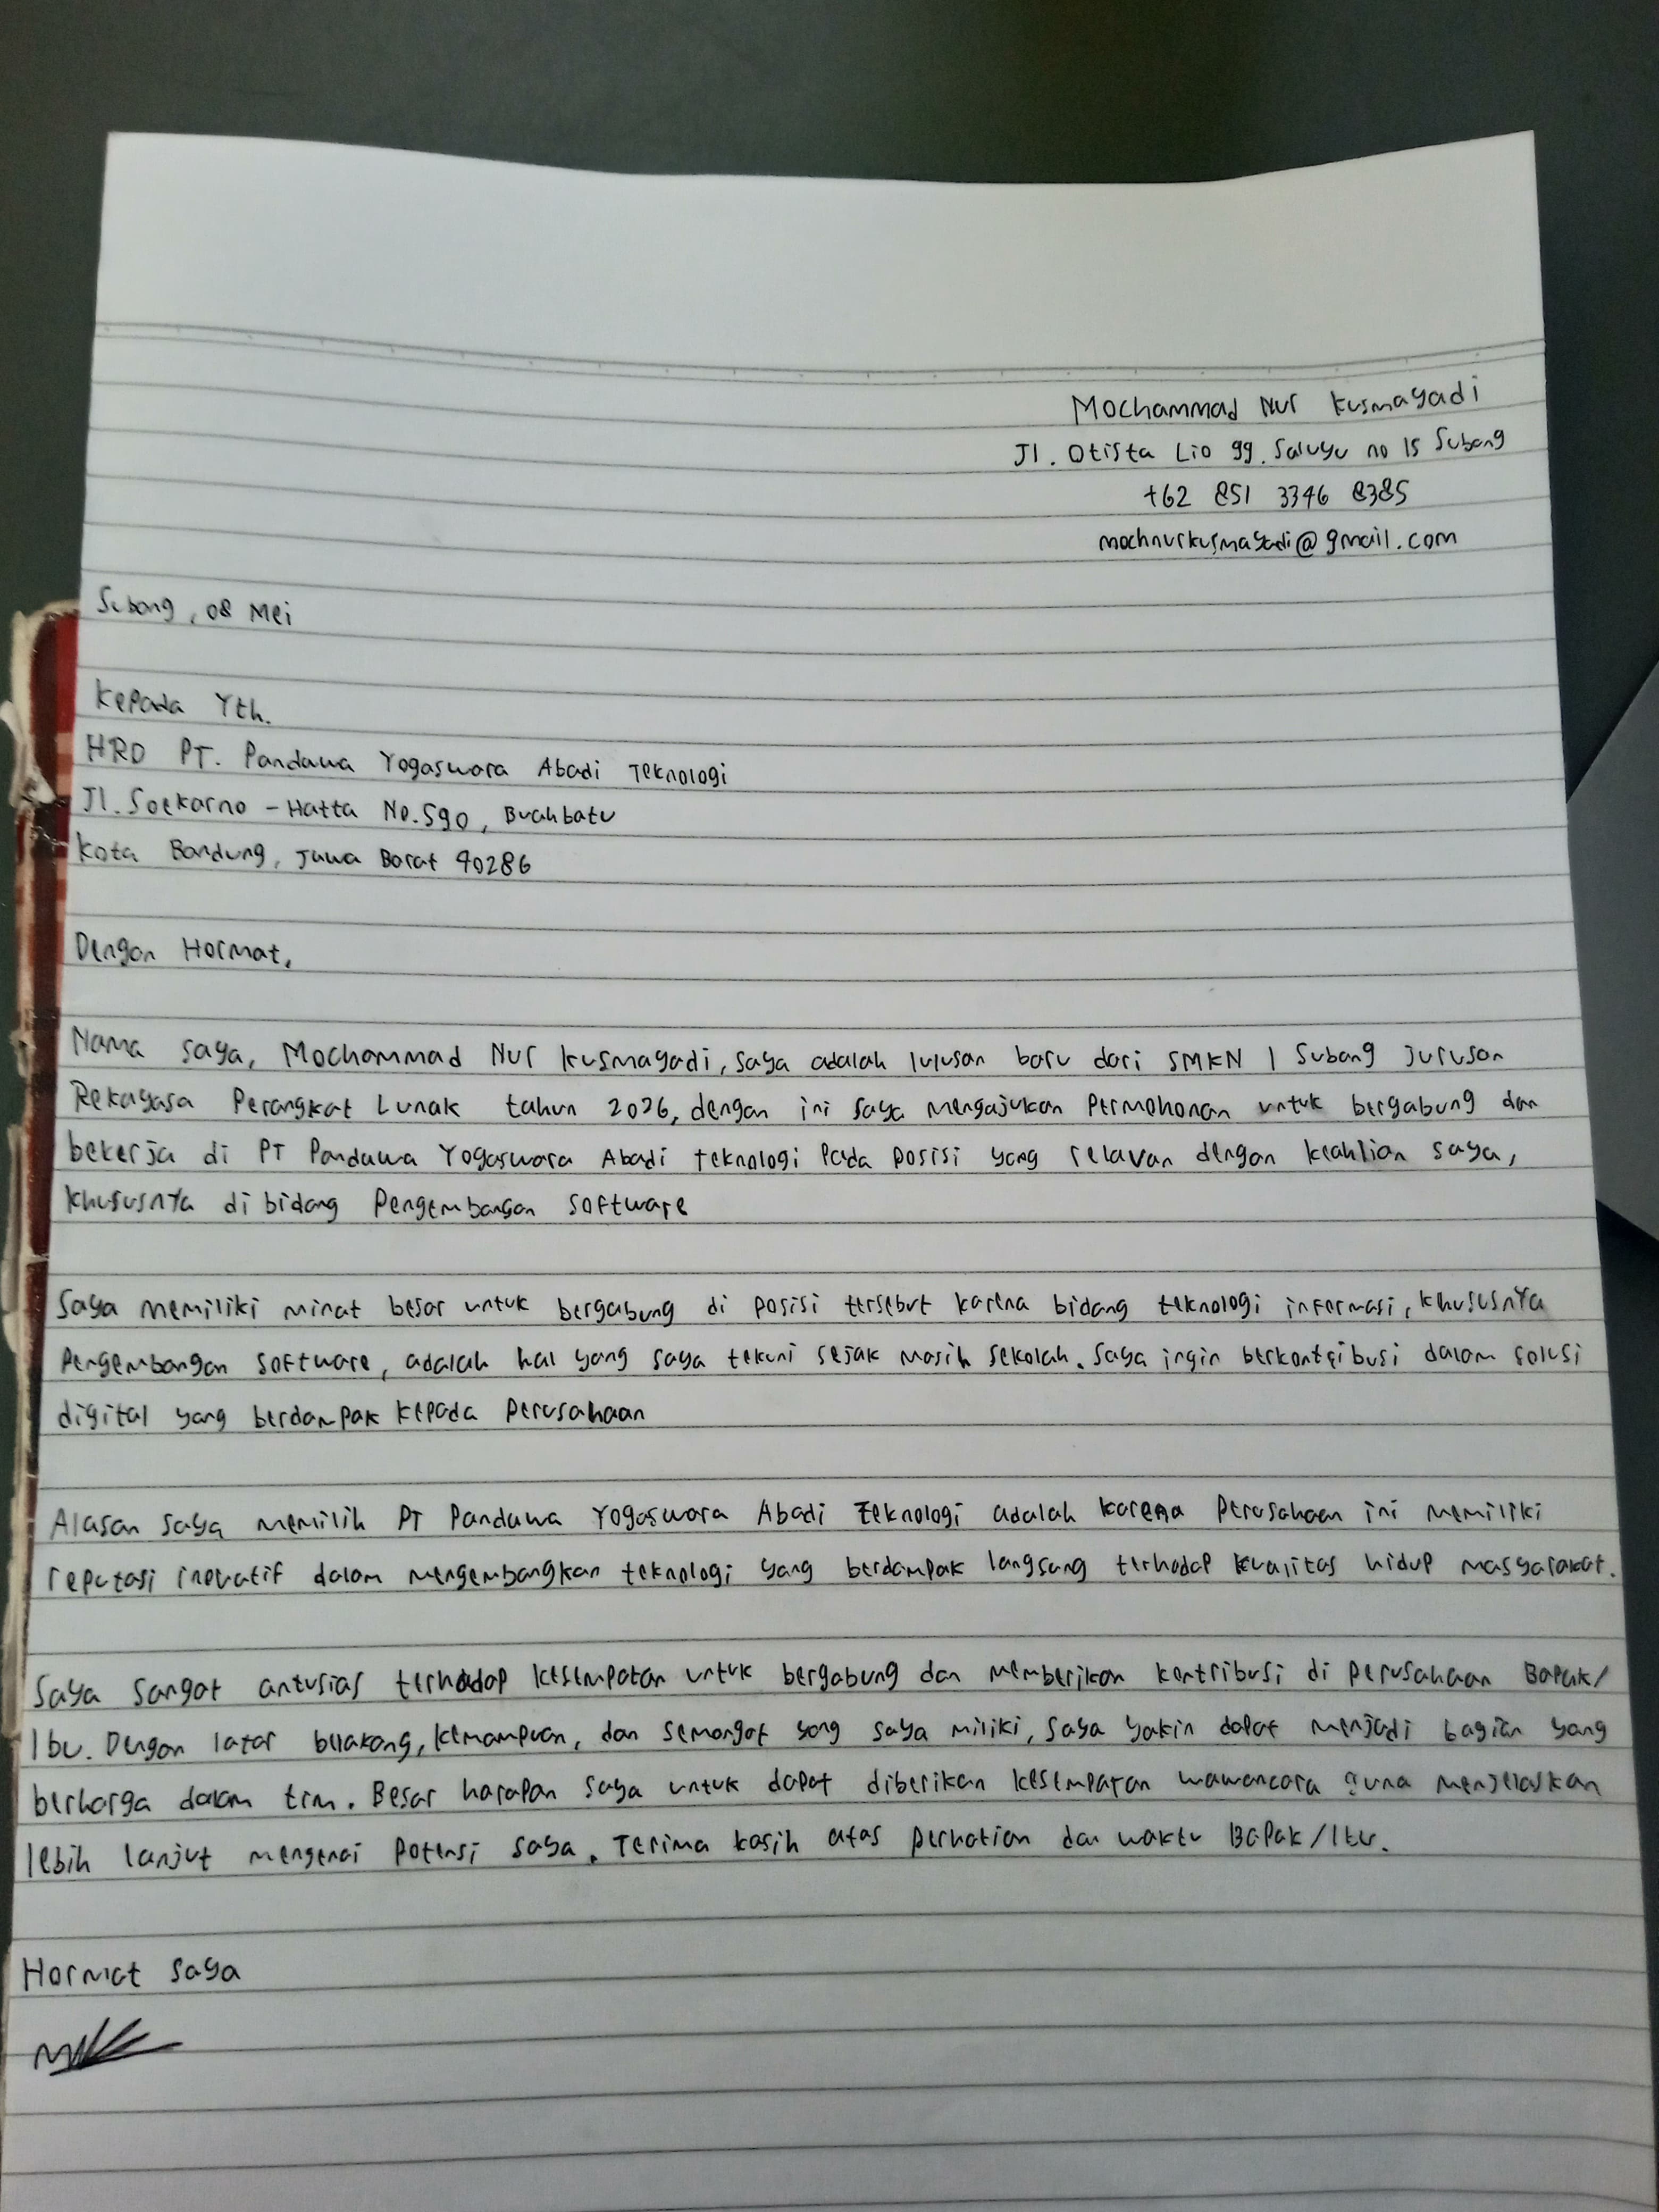 Mochammad Nur Kusmayadi
Jl. Otista Lio gg. Saluyu no 15 Subang
+62 851 3346 8385
mochnurkusmayadi@gmail.com
Subang, 08 Mei
Kepada Yth.
HRD PT. Pandawa Yogaswara Abadi Teknologi
Jl. Soekarno - Hatta No.590, Buahbatu
Kota Bandung, Jawa Barat 40286
Dengan Hormat,
Nama saya, Mochammad Nur Kusmayadi, saya adalah lulusan baru dari SMKN 1 Subang jurusan
Rekayasa Perangkat Lunak tahun 2026, dengan ini saya mengajukan Permohonan untuk bergabung dan
bekerja di PT Pandawa Yogaswara Abadi teknologi Pada posisi yang relavan dengan keahlian saya,
khususnya di bidang Pengembangan software
Saya memiliki minat besar untuk bergabung di posisi tersebut karena bidang teknologi informasi, khususnya
Pengembangan software, adalah hal yang saya tekuni sejak masih sekolah. Saya ingin berkontribusi dalam solusi
digital yang berdampak kepada perusahaan
Alasan saya memilih PT Pandawa Yogaswara Abadi Teknologi adalah karena Perusahaan ini memiliki
reputasi inovatif dalam mengembangkan teknologi yang berdampak langsung terhadap kualitas hidup masyarakat.
Saya sangat antusias terhadap kesempatan untuk bergabung dan memberikan kontribusi di perusahaan Bapak/
Ibu. Dengan latar belakang, kemampuan, dan semangat yang saya miliki, saya yakin dapat menjadi bagian yang
berharga dalam tim. Besar harapan saya untuk dapat diberikan kesempatan wawancara guna menjelaskan
lebih lanjut mengenai potensi saya. Terima kasih atas perhatian dan waktu Bapak/Ibu.
Hormat saya